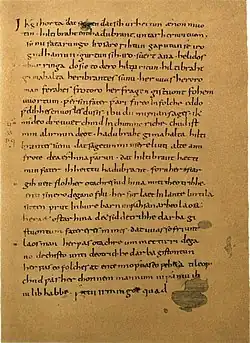 Ik gihorta dat seggen dat sih urhettun ænon muo
tin. hiltibraht enti hadubrant. untar heriun tuem.
sunufatarungo. iro saro rihtun garutun se iro
gudhamun. gurtun sih. iro. suert ana. helidos
ubar ringa do sie to dero hiltiu ritun. hiltibraht
gimahalta heribrantes sunu. her uuas heroro
man ferahes frotoro. her fragen gistuont fohem
uuortum. ƿer sin fater ƿari fireo In folche eddo
ƿelihhes cnuosles du sis. ibu du mi ænan sages. ik
mi deodre uuet chind In chunincriche. chud ist
min al irmindeot. hadubraht gimahalta hilti
brantes sunu dat sagetun mi usere liuti alte anti
frote dea erhina ƿarun. dat hiltibrant hætti
min fater. ih heittu hadubrant. forn her ostar
gihueit floh her otachres nid hina miti theotrihhe.
enti sinero degano filu. her furlaet In lante luttila
sitten prut In bure barn unƿahsan arbeo laosa.
heraet ostar hina desid detrihhe darba gi
stuontum. fatereres mines. dat uuas so friunt
laos man her ƿas otachre ummettirri dega
no dechisto unti deotrichhe darba gistontun
her ƿas eo folches at ente imo ƿuas eo peheta ti leop
chud ƿas her chonnem mannum ni ƿaniu ih
iu lib habbe. ƿettu irmingot quad